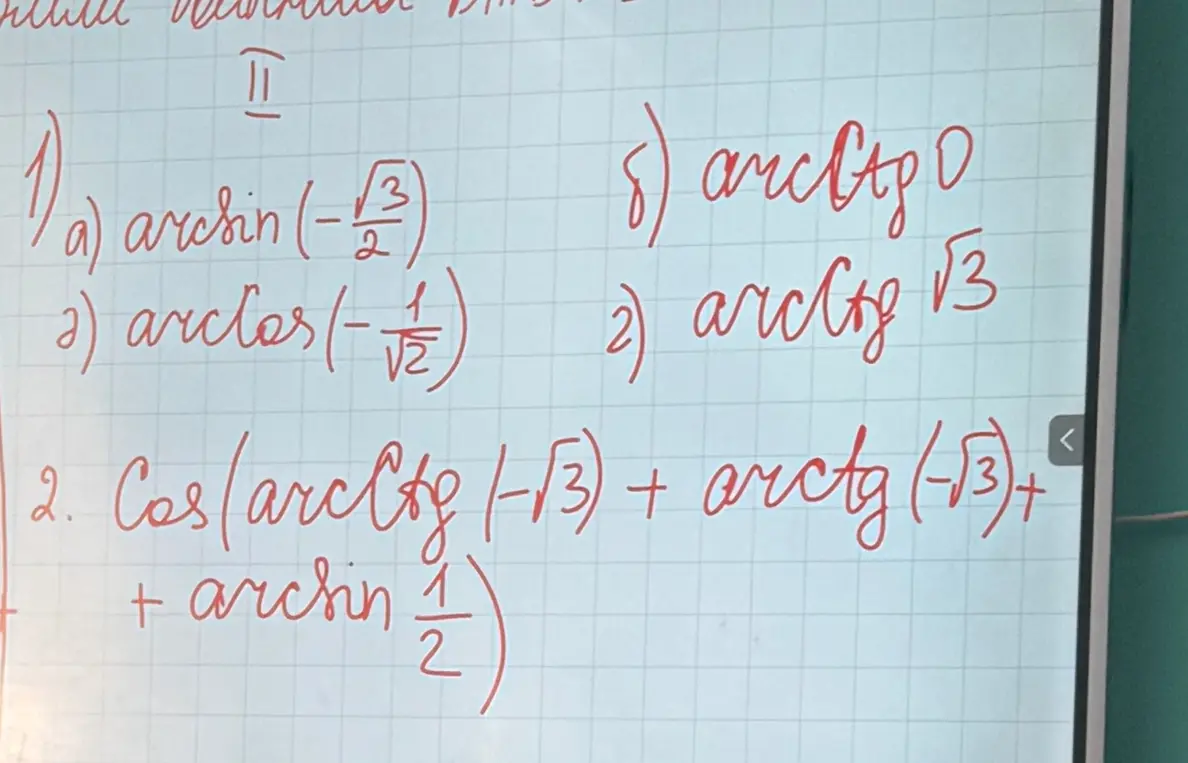 II
1)
а) arcsin (-√3/2) б) arcCtg 0
в) arcCos (-1/√2) г) arcCtg √3
2. Cos (arcCtg (-√3) + arctg (-√3) +
+ arcsin 1/2)